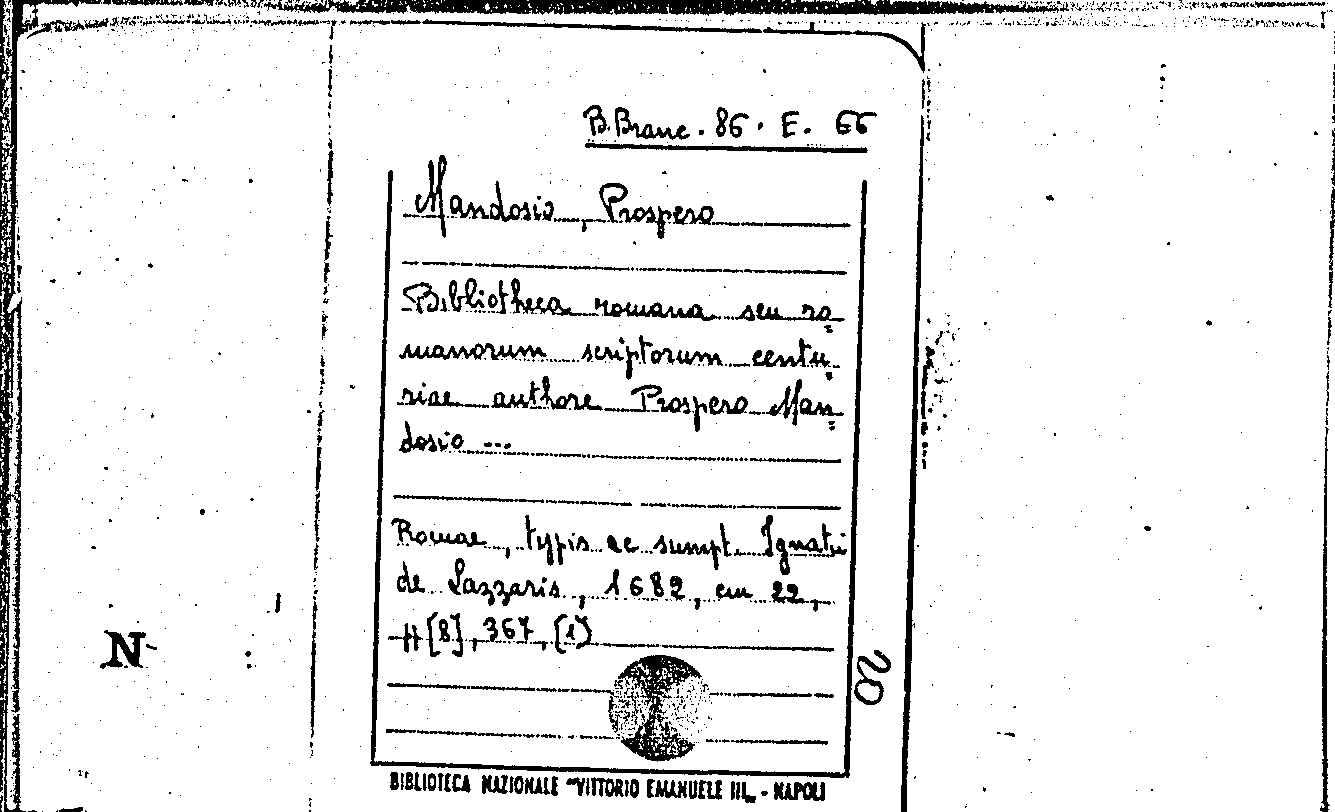 B. Branc. 86. E. 66
Mandosio, Prospero
Bibliotheca romana seu ro=
manorum scriptorum centu=
riae authore Prospero Man=
dosio ...
Romae, typis ac sumpt. Ignatii
de Lazzaris, 1682, cm 22,
pp [8], 367, [1]
20
N
BIBLIOTECA NAZIONALE "VITTORIO EMANUELE III„ - NAPOLI